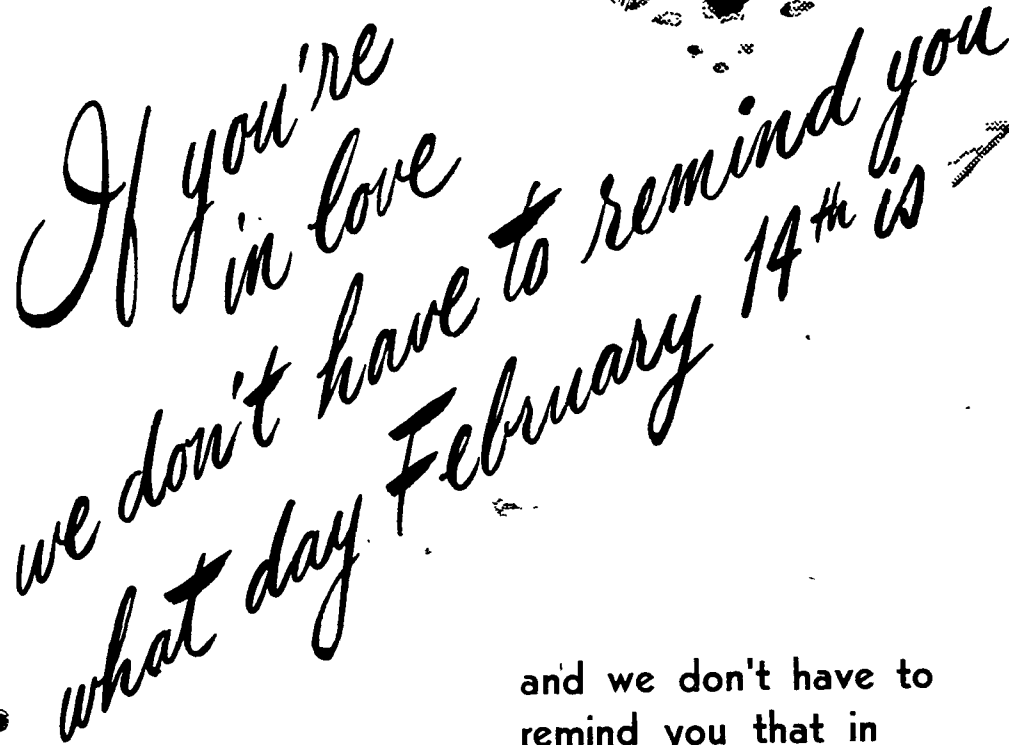 If you're
in love
we don't have to remind you
what day February 14th is
and we don't have to
remind you that in